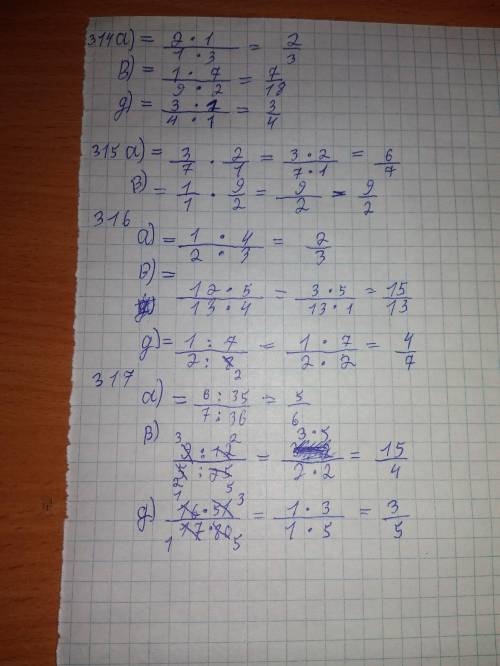 314 а) = 2 · 1 / 1 · 3 = 2/3
в) = 1 · 7 / 9 · 2 = 7/18
д) = 3 · 1 / 4 · 1 = 3/4
315 а) = 3/7 · 2/1 = 3 · 2 / 7 · 1 = 6/7
в) = 1/1 · 9/2 = 9/2 = 9/2
316
а) = 1 · 4 / 2 · 3 = 2/3
в) =
12 · 5 / 13 · 4 = 3 · 5 / 13 · 1 = 15/13
д) = 1 : 7 / 2 : 8 2 = 1 · 7 / 2 · 2 = 4/7
317
а) = 6 : 35 / 7 : 36 = 5/6
в)
3 2
: / : = 3 · 5 / 2 · 2 = 15/4
2 5
д) 1 3
16 · 51 / 17 · 80 = 1 · 3 / 1 · 5 = 3/5
1 5